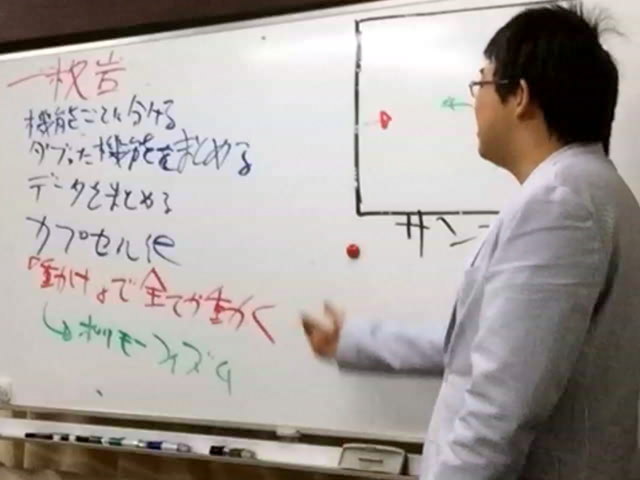 一枚岩
機能ごとに分ける
ダブった機能をまとめる
データをまとめる
カプセル化
「動け」で全てが動く
↳ポリモーフィズム
サン